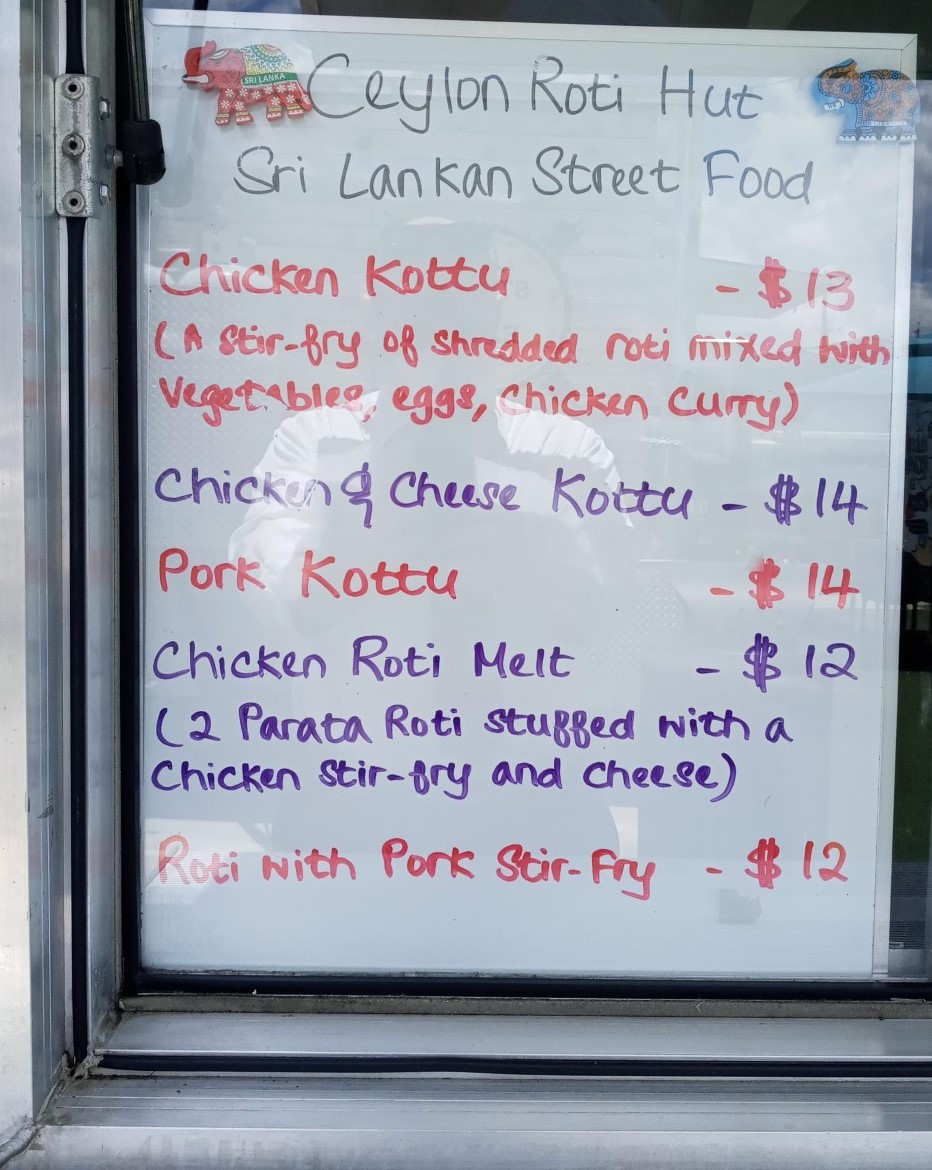 SRI LANKA
Ceylon Roti Hut
SRI LANKA
Sri Lankan Street Food
Chicken Kottu - $13
(A Stir-fry of Shredded roti mixed with
Vegetables, eggs, Chicken Curry)
Chicken & Cheese Kottu - $14
Pork Kottu - $14
Chicken Roti Melt - $12
(2 Parata Roti stuffed with a
Chicken Stir-fry and cheese)
Roti with Pork Stir-Fry - $12